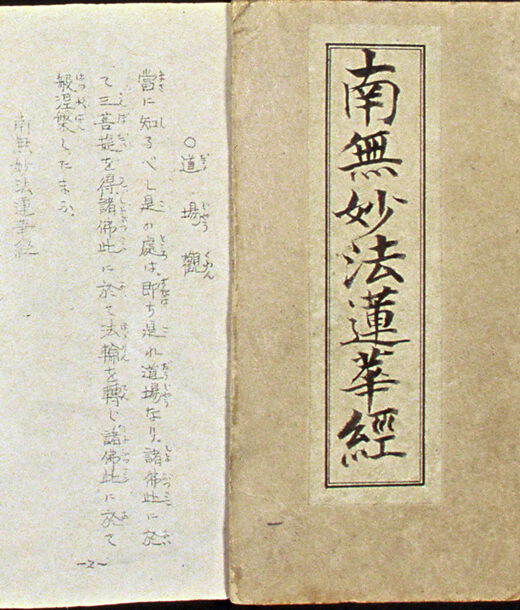 南無妙法蓮華經
○道場觀
當に知るべし是の處は、即ち是れ道場なり、諸佛此に於
て三菩提を得、諸佛此に於て法輪を轉じ、諸佛此に於て
般涅槃したまふ。
南無妙法蓮華經
-2-